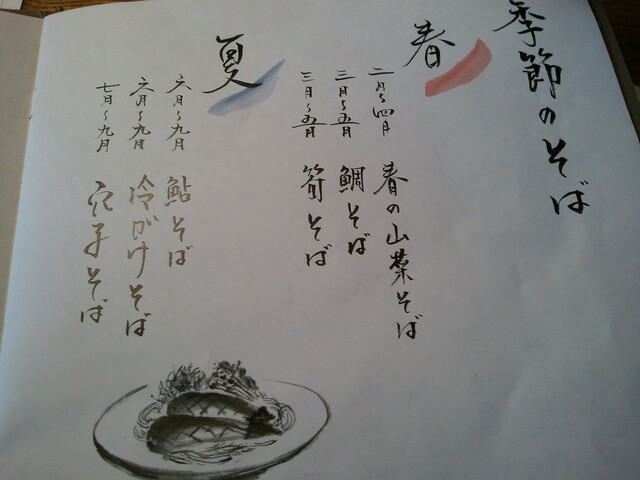 季節のそば
春
二月〜四月 春の山菜そば
三月〜五月 鯛そば
三月〜五月 筍そば
夏
六月〜九月 鮎そば
六月〜九月 冷がけそば
七月〜九月 穴子そば